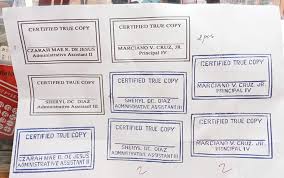 CERTIFIED TRUE COPY
CZARAH MAE R. DE JESUS
Administrative Assistant II
CERTIFIED TRUE COPY
MARCIANO V. CRUZ, JR.
Principal IV
2 pcs
CERTIFIED TRUE COPY
SHERYL DC. DIAZ
Administrative Assistant III
CERTIFIED TRUE COPY
SHERYL DC. DIAZ
ADMINISTRATIVE ASSISTANT III
CERTIFIED TRUE COPY
MARCIANO V. CRUZ, JR.
PRINCIPAL IV
CERTIFIED TRUE COPY
CZARAH MAE R. DE JESUS
ADMINISTRATIVE ASSISTANT II
CERTIFIED TRUE COPY
SHERYL DC. DIAZ
ADMINISTRATIVE ASSISTANT III
CERTIFIED TRUE COPY
MARCIANO V. CRUZ, JR.
PRINCIPAL IV
2
2